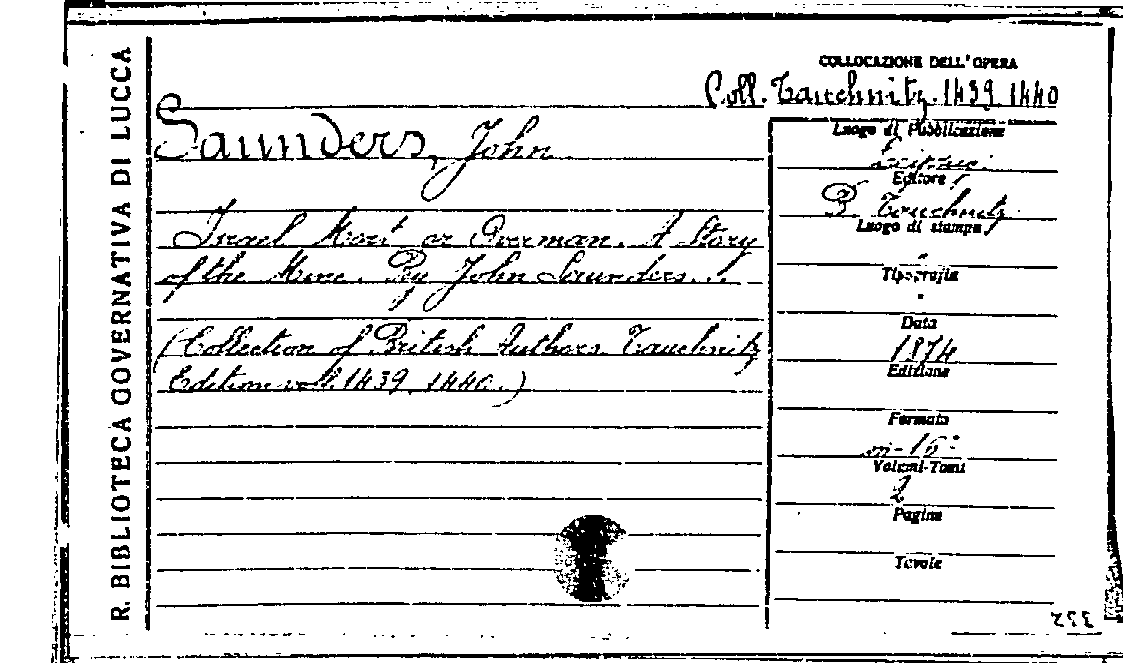 R. BIBLIOTECA GOVERNATIVA DI LUCCA
COLLOCAZIONE DELL'OPERA
Coll. Tauchnitz. 1439. 1440
Saunders, John
Israel Mort or Overman. A Story
of the Mine. By John Saunders.
(Collection of British Authors. Tauchnitz
Edition voll. 1439. 1440.)
Luogo di Pubblicazione
Editore
B. Tauchnitz
Luogo di stampa
"
Tipografia
"
Data
1874
Edizione
Formato
in-16°
Volumi-Tomi
2
Pagine
Tavole
352